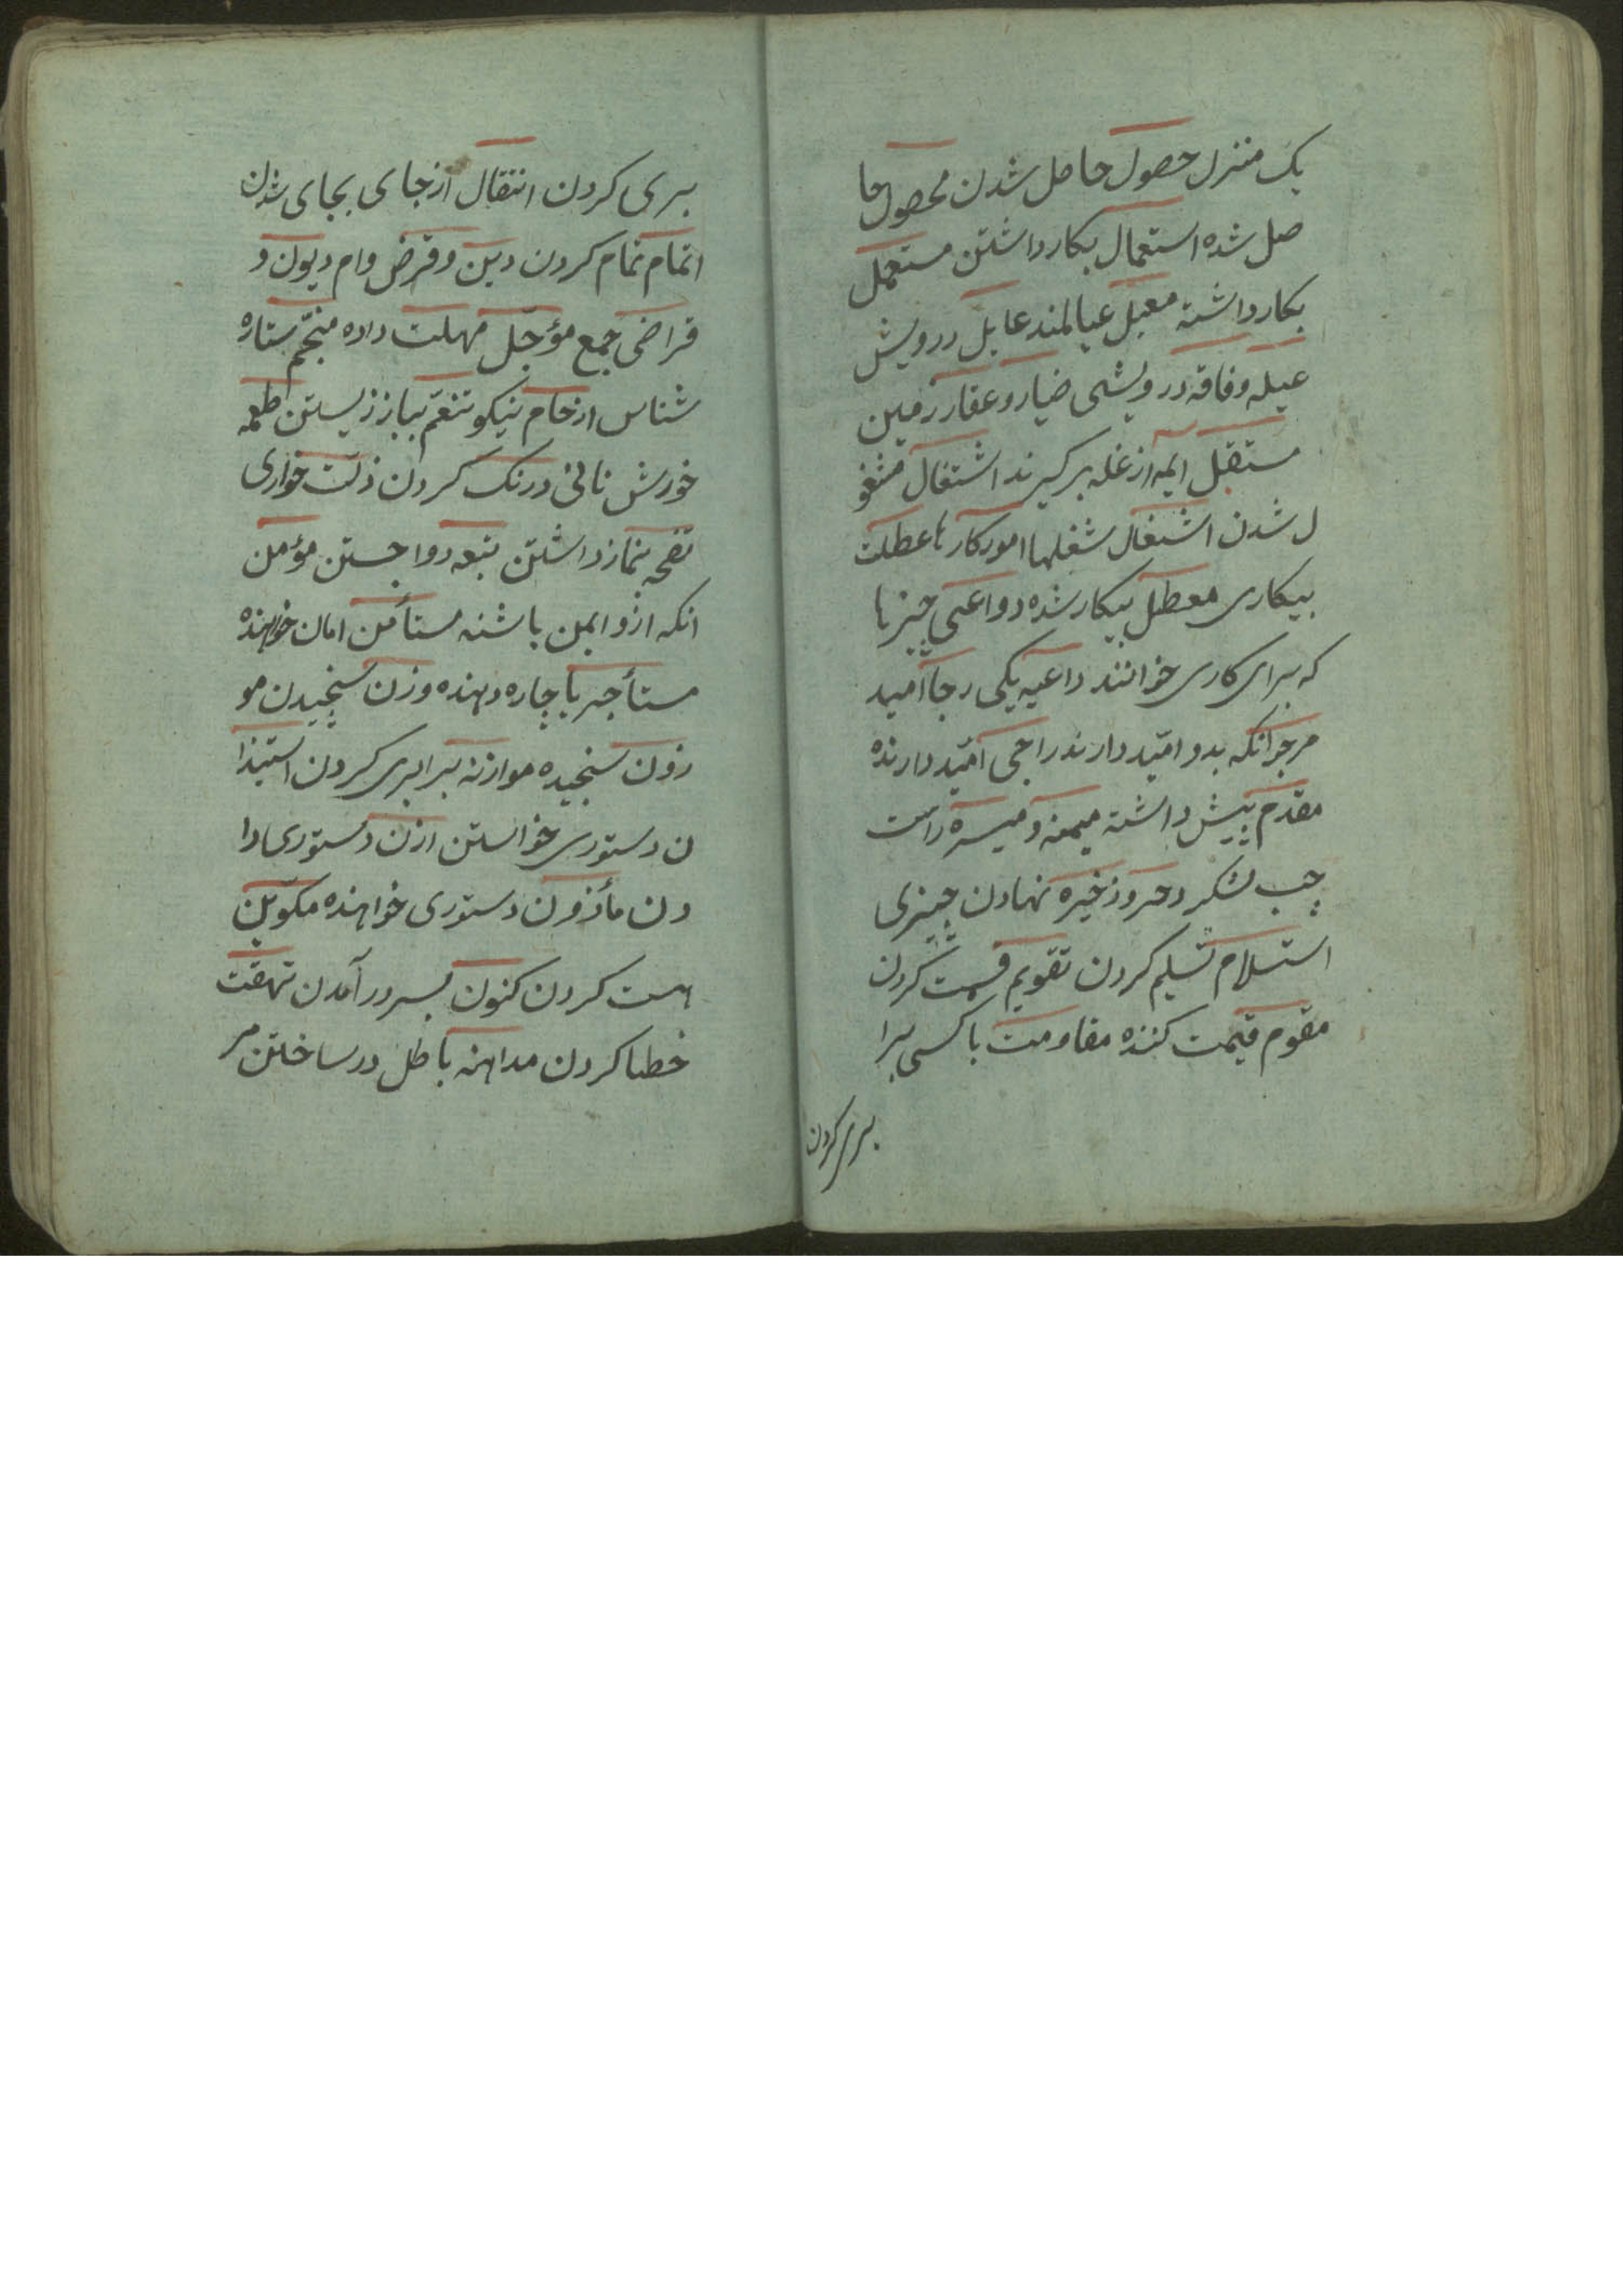 یک منزل حصول حاصل شدن محصول حا
صل شده استعمال بکار داشتن مستعمل
بکار داشته معیل عیالمند عایل درویش
عیله و فاقه درویشی ضیاع و عقار زمین
مستقل ایمه از غله برگیرند اشتغال مشغو
ل شدن اشتغال شغلها امور کارها عطلت
بیکاری معطل بیکار شده دواعی چیزها
که برای کاری خوانند داعیه یکی رجا امید
مرجو انکه بدو امّید دارند راجی امّید دارنده
مقدم پیش داشته میمنه و میسره راست
چپ لشکر ذخیره نهادن چیزی
استسلام تسلیم کردن تقویم قیمت کردن
مقوم قیمت کننده مقاومت با کسی برا
بری کردن
بری کردن انتقال از جای بجای شدن
اتمام تمام کردن دین و قرض وام دیون و
قراضی جمع مؤجّل مهلت داده منجّم ستاره
شناس نیکو تنعّم بناز زیستن اطعمه
خورش تانی درنک کردن ذلّت خواری
نماز داشتن جستن مؤمن
انکه ازو ایمن باشند مستأمن امان خواهنده
مستأجر باجاره دهنده وزن سنجیدن مو
زون سنجیده موازنه برابری کردن استیذا
ن دستوری خواستن اذن دستوری دا
دن مأذون دستوری خواهنده مکوّن
هست کردن کنون بسر در آمدن
خطا کردن مداهنه باطل در ساختن مر